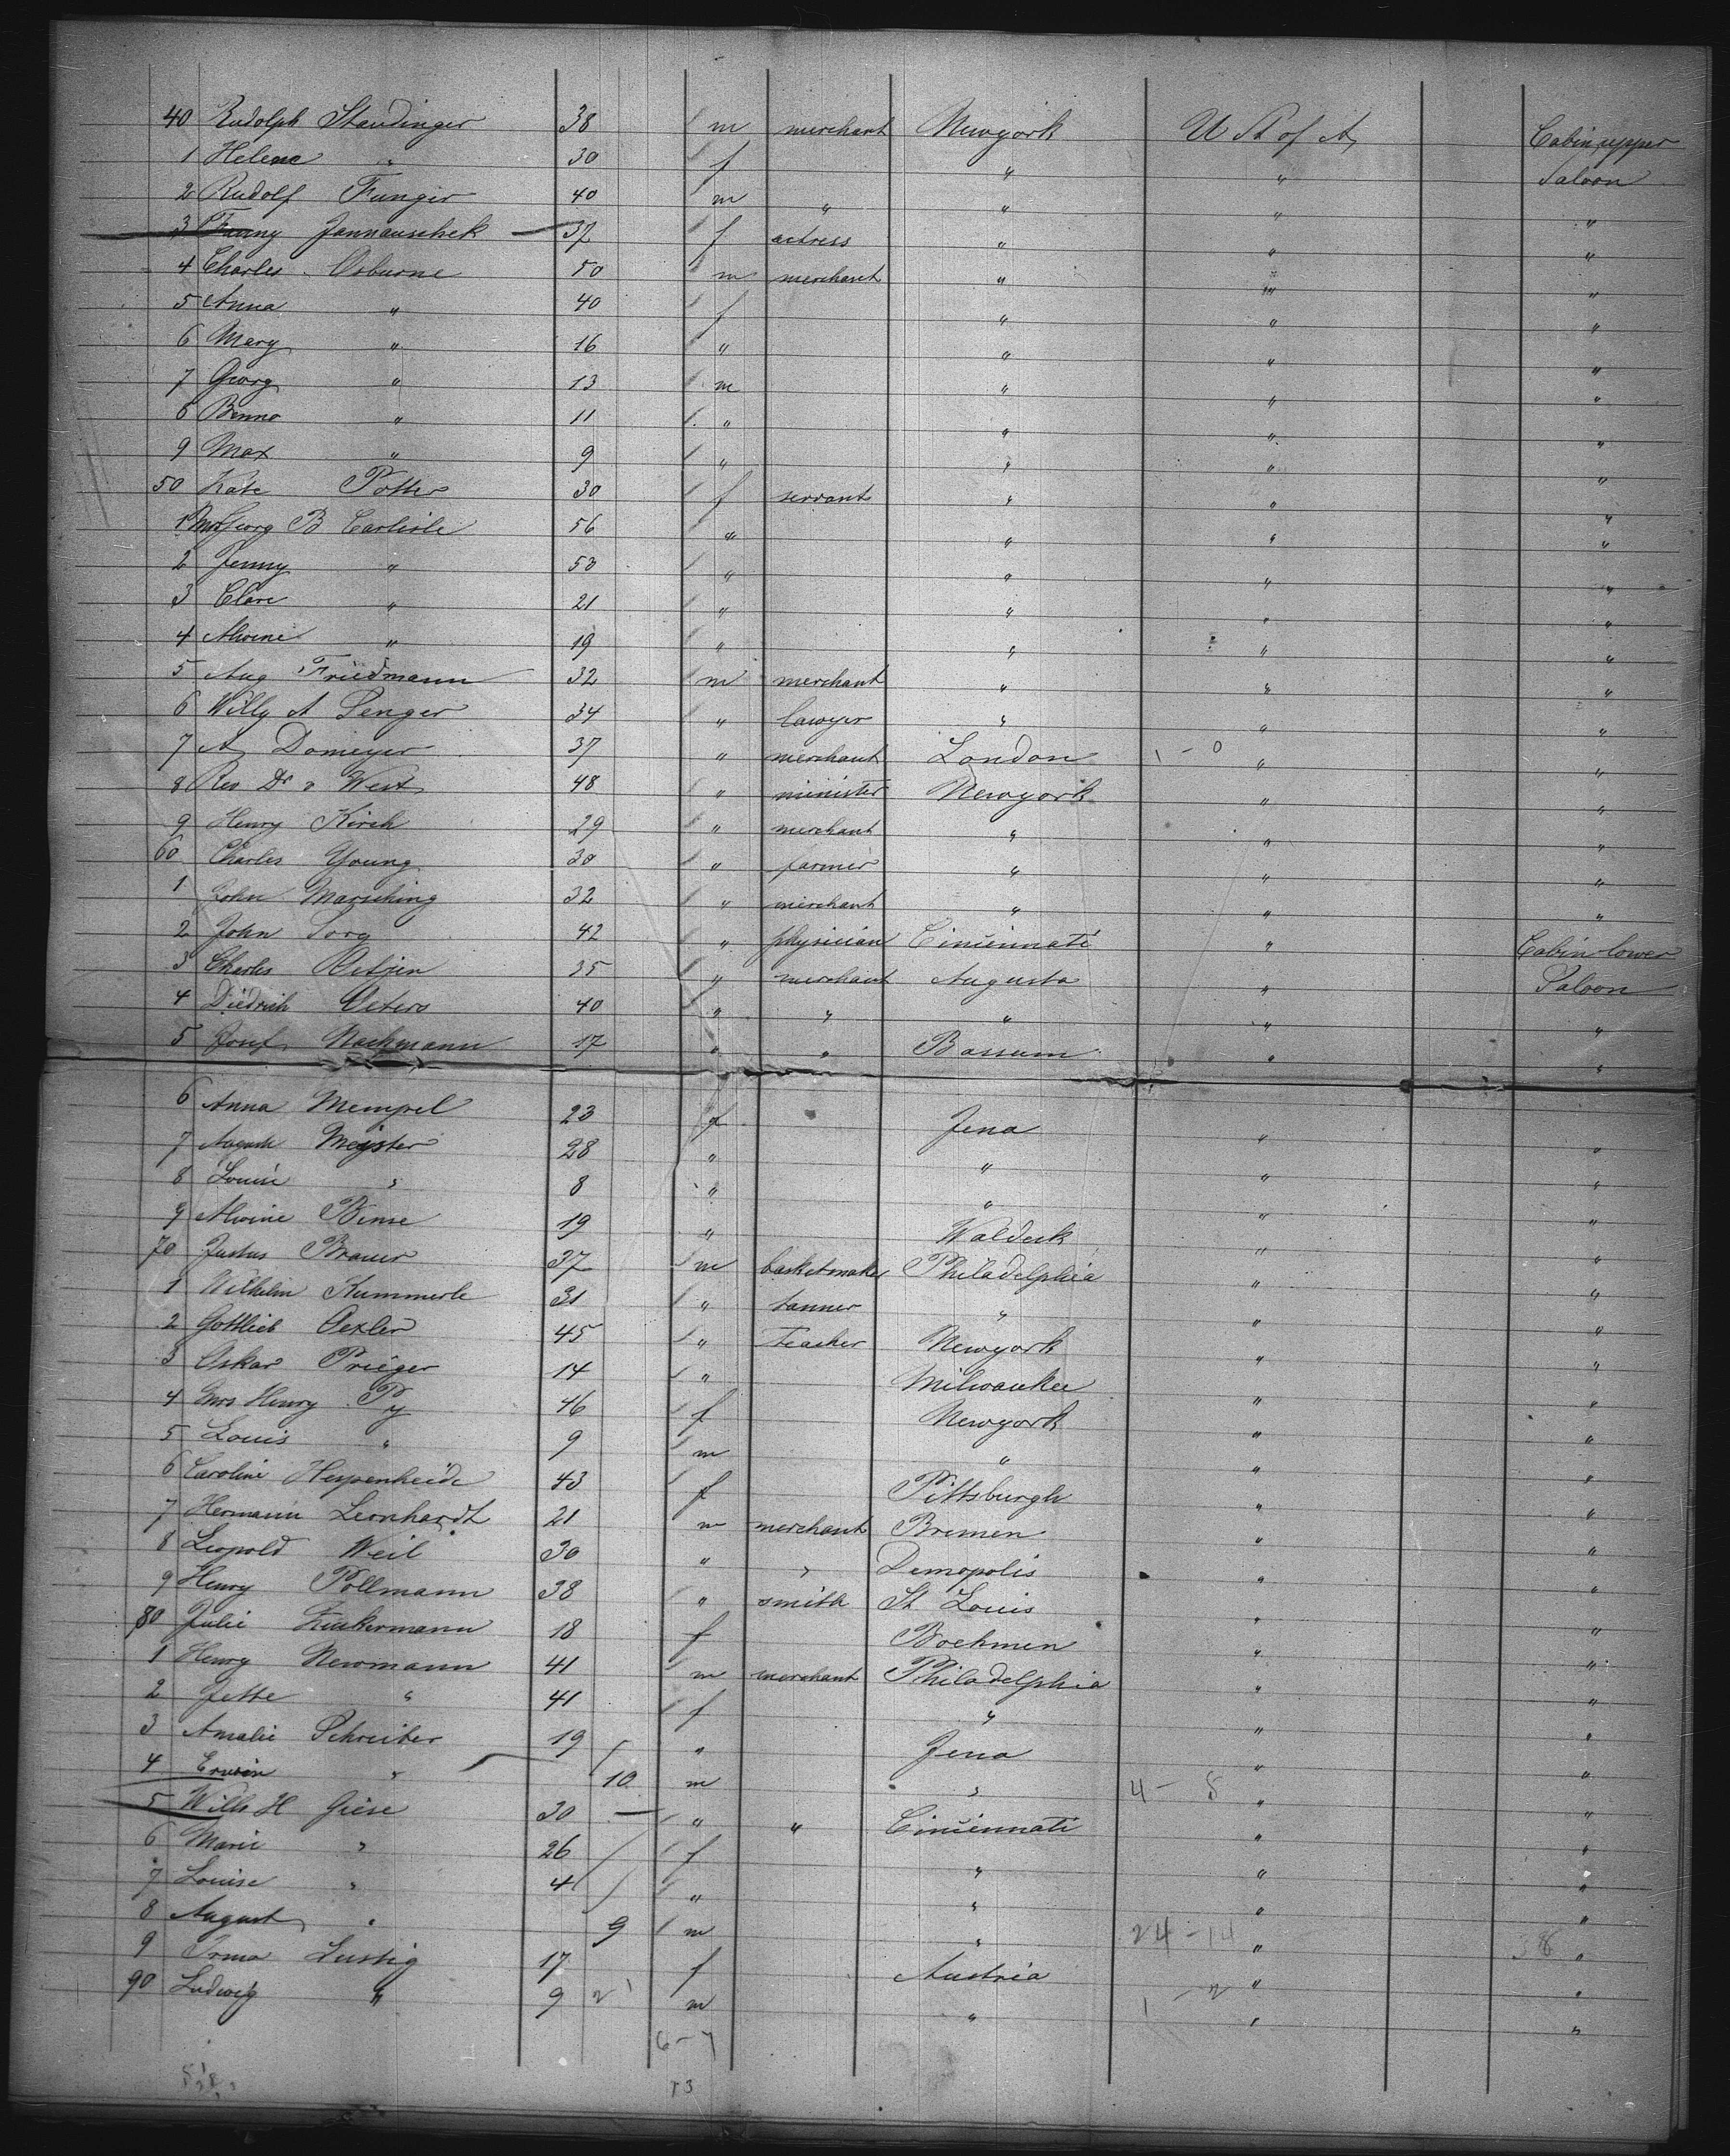 40 Rudolph Staudinger 38 m merchant Newyork U St of A Cabin upper
1 Helene " 30 f " " Saloon
2 Rudolf Funger 40 m " " " "
3 Fanny Jannauschek 37 f actress " " "
4 Charles Osburne 50 m merchant " " "
5 Anna " 40 f " " "
6 Mary " 16 " " " "
7 Georg " 13 m " " "
8 Benno " 11 " " " "
9 Max " 9 " " " "
50 Kate Potter 30 f servant " " "
1 Mrs Georg B Carlisle 56 " " " "
2 Jenny " 53 " " " "
3 Clare " 21 " " " "
4 Alwine " 19 " " " "
5 Aug Friedmann 32 m merchant " " "
6 Willy A Senger 34 " lawyer " " "
7 A Domeyer 37 " merchant London 1 - 0 " "
8 Rev Dr v West 48 " minister Newyork " "
9 Henry Kirch 29 " merchant " " "
60 Charles Young 30 " farmer " " "
1 John Marsching 32 " merchant " " "
2 John Sorg 42 " physician Cincinnati " Cabin lower
3 Charles Retjen 35 " merchant Augusta " Saloon
4 Diedrich Peters 40 " " " " "
5 Josef Nachmann 17 " " Bassum " "
6 Anna Mempel 23 f Jena " "
7 August Meister 28 " " " "
8 Louise " 8 " " " "
9 Alwine Binse 19 " Waldeck " "
70 Justus Brauer 37 m basketmaker Philadelphia " "
1 Wilhelm Kummerle 31 " tanner " " "
2 Gottlieb Oexler 45 " teacher Newyork " "
3 Oskar Prieger 14 " Milwaukee " "
4 Mrs Henry Py 46 f Newyork " "
5 Louis " 9 m " " "
6 Caroline Hespenheide 43 f Pittsburgh " "
7 Hermann Leonhardt 21 m merchant Bremen " "
8 Leopold Weil 30 " " Demopolis " "
9 Henry Pollmann 38 " smith St Louis " "
80 Julie Zuckermann 18 f Boehmen " "
1 Henry Newmann 41 m merchant Philadelphia " "
2 Jette " 41 f " " "
3 Amalie Schreiber 19 " Jena " "
4 Erwin " 10 m " 4 - 8 " "
5 Willh H Giese 30 " " Cincinnati " "
6 Marie " 26 f " " "
7 Louise " 4 " " " "
8 August " 9 m " 24 - 14 " 38 "
9 Irma Lustig 17 f Austria " "
90 Ludwig " 9 2 m " 1 - 2 " "
6 - 7
73